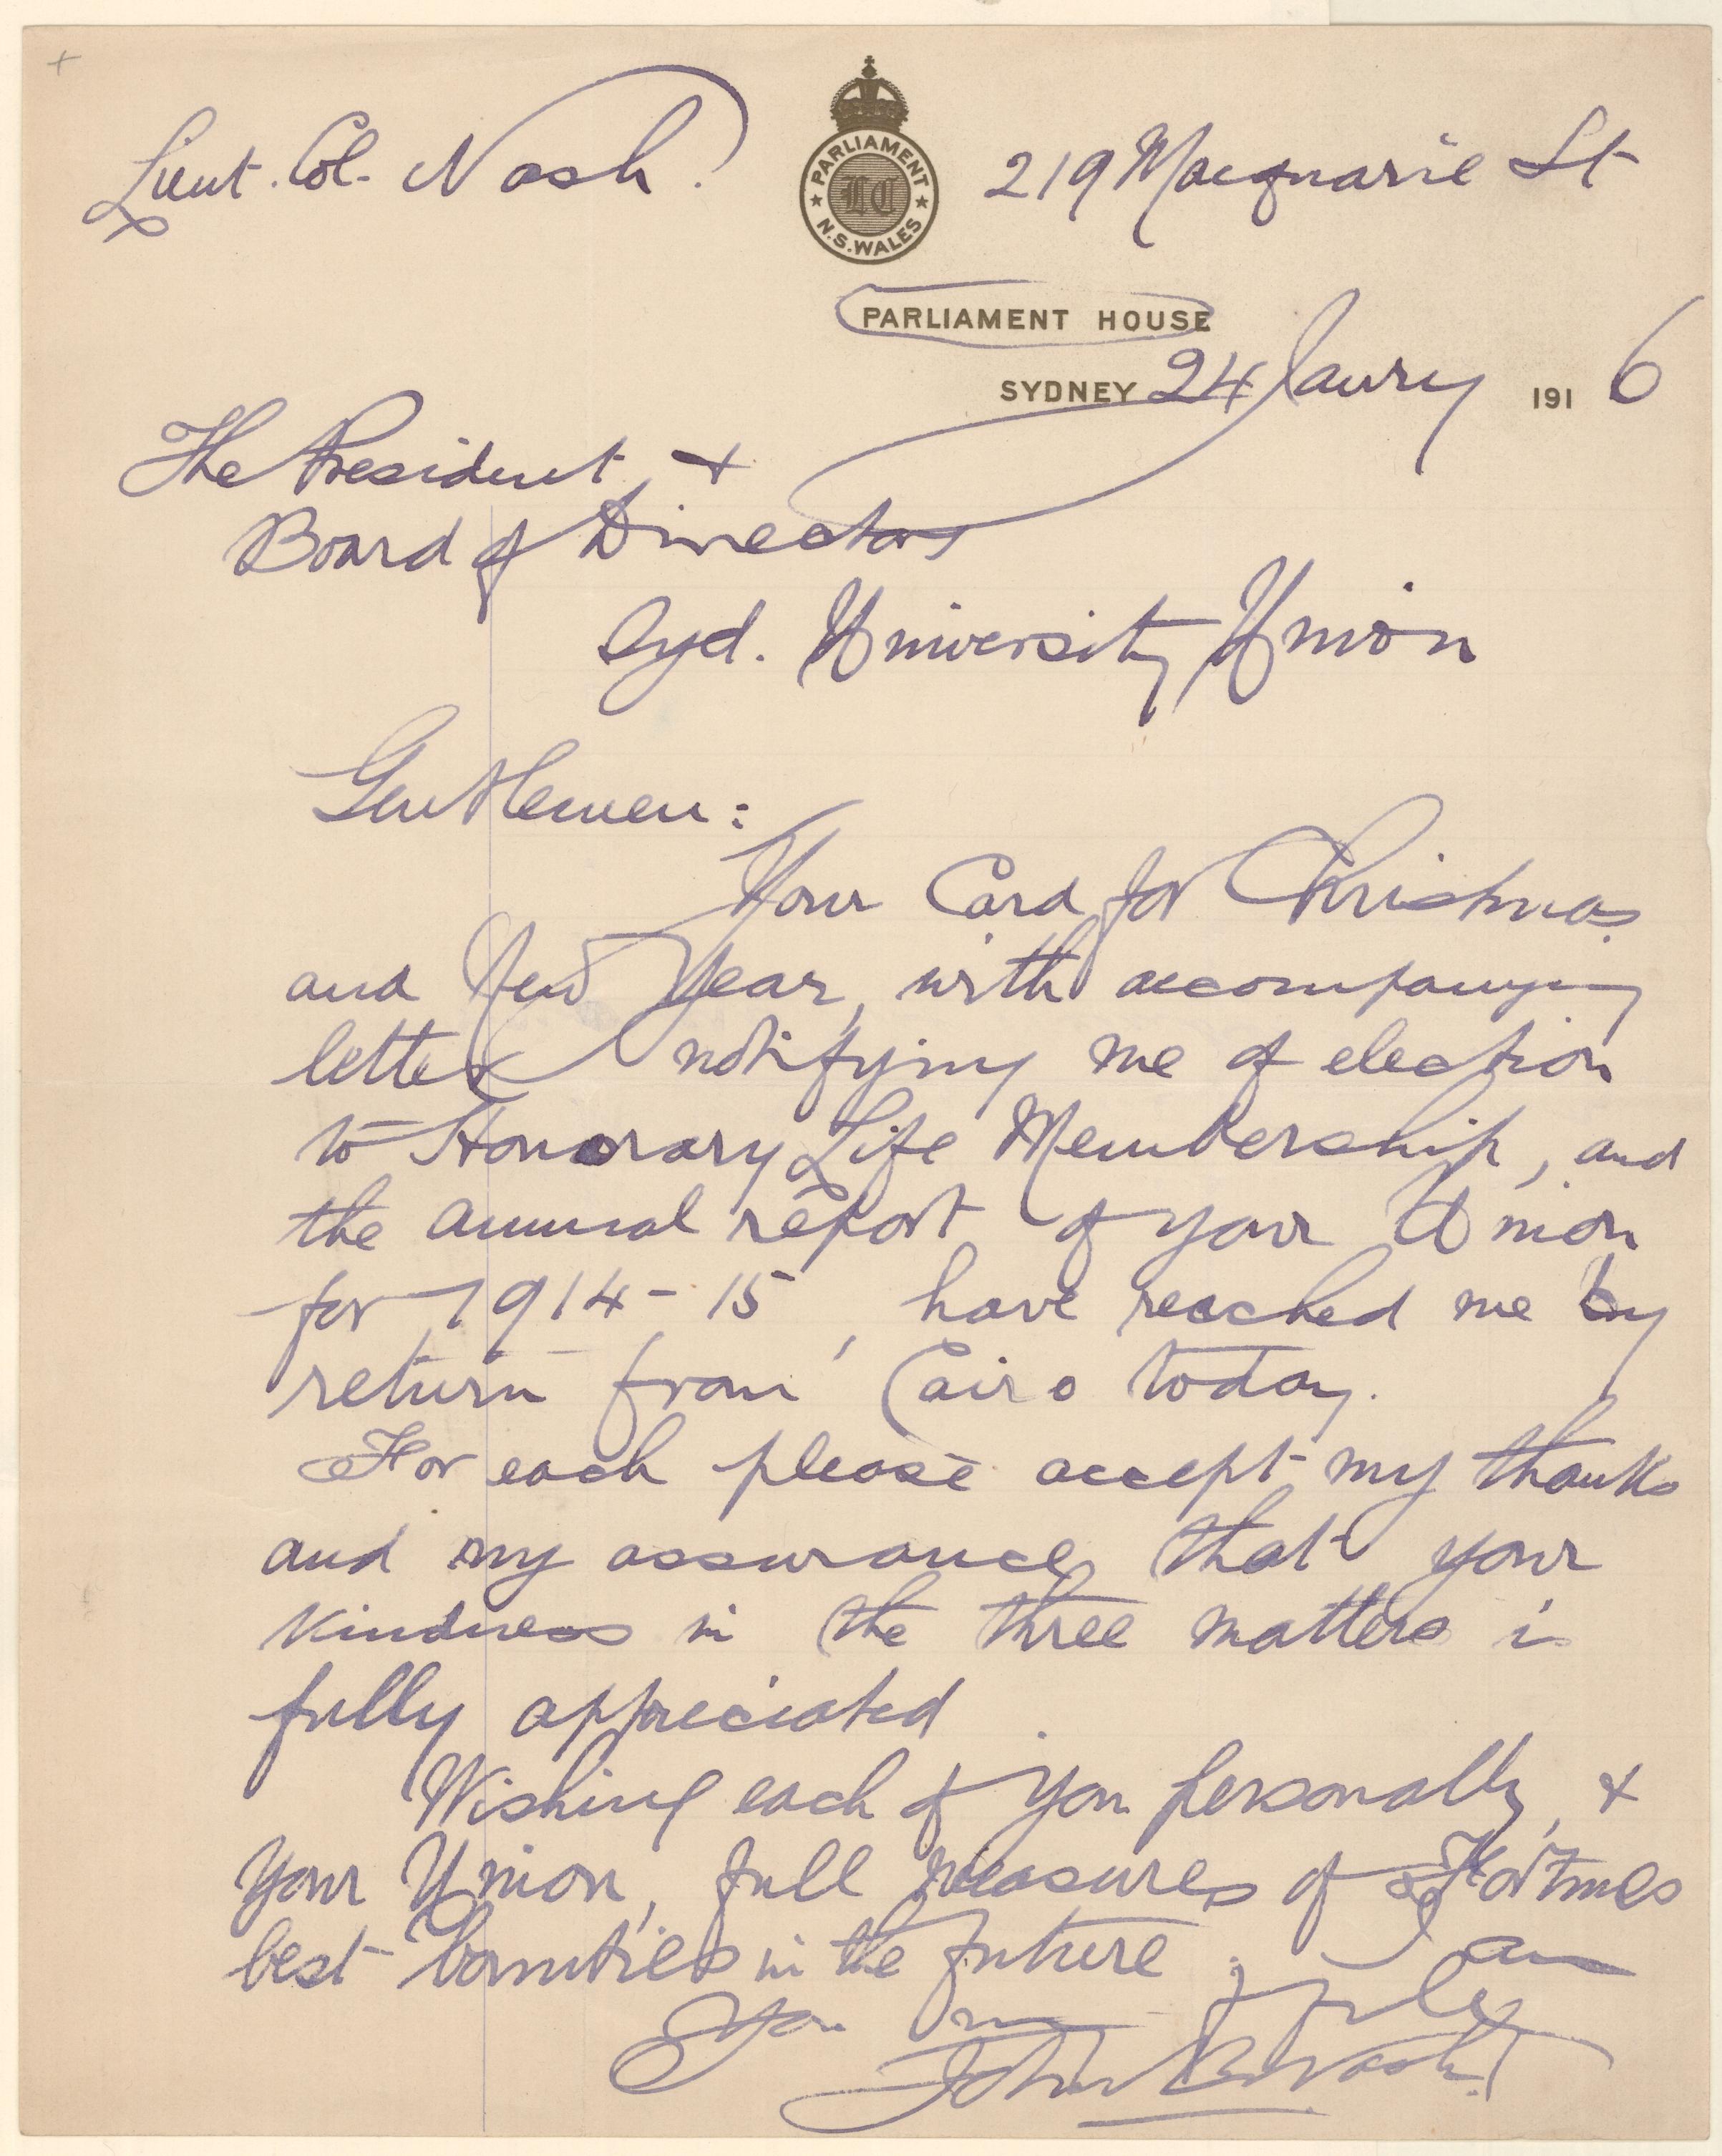 Lieut. Col. Nash.
PARLIAMENT
LC
N.S.WALES
219 Macquarie St
PARLIAMENT HOUSE
SYDNEY 24 Jaury 1916
The President, +
Board of Directors
Syd. University Union
Gentlemen:
Your Card for Christmas
and New Year, with accompanying
letter notifying me of election
to Honorary Life Membership, and
the annual report of your Union
for 1914-15, have reached me by
return from Cairo today.
For each please accept my thanks
and my assurance that your
kindness in the three matters is
fully appreciated.
Wishing each of you personally, +
your Union, full measures of Fortunes
best bounties in the future; I am
John B Nash.